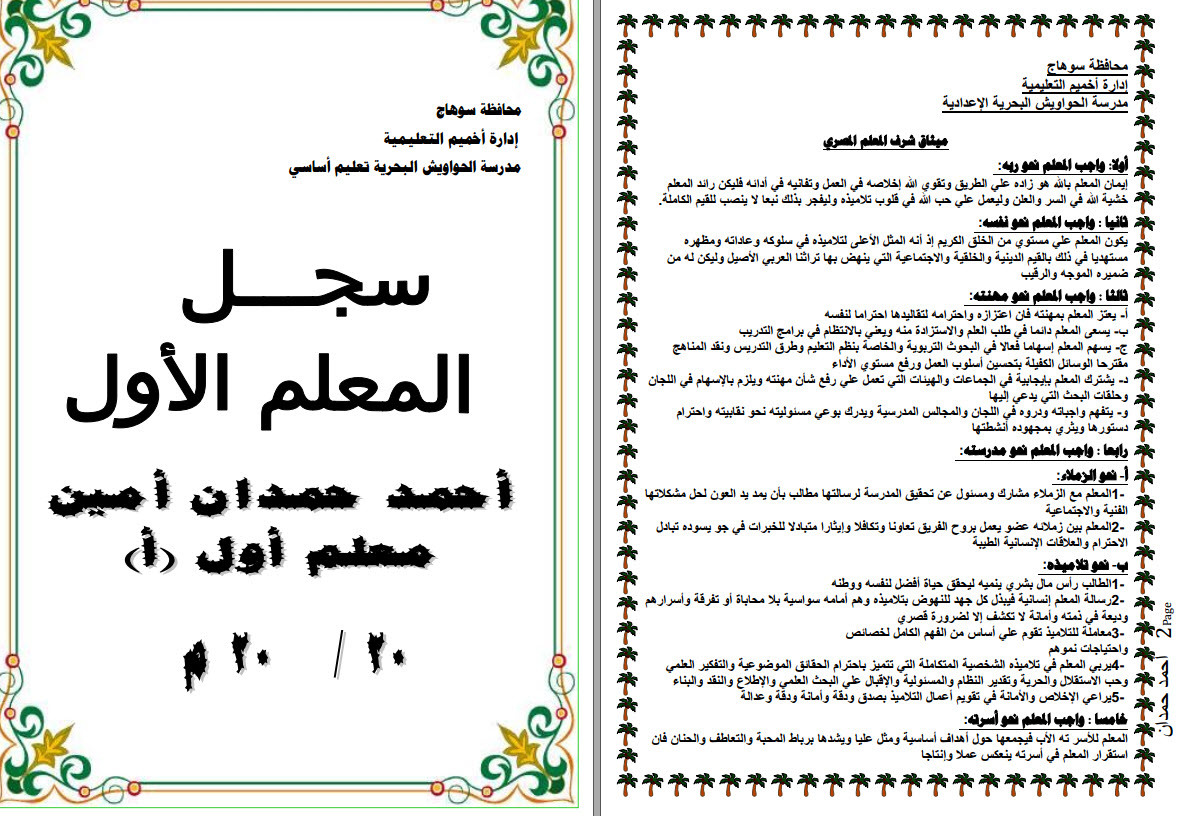 محافظة سوهاج
إدارة أخميم التعليمية
مدرسة الحواويش البحرية تعليم أساسي
سجـــل
المعلم الأول
أحمد حمدان أمين
معلم أول (أ)
٢٠ / ٢٠ م
محافظة سوهاج
إدارة أخميم التعليمية
مدرسة الحواويش البحرية الإعدادية
ميثاق شرف المعلم المصري
أولا: واجب المعلم نحو ربه:
إيمان المعلم بالله هو زاده علي الطريق وتقوي الله إخلاصه في العمل وتفانيه في أدائه فليكن رائد المعلم
خشية الله في السر والعلن وليعمل علي حب الله في قلوب تلاميذه وليفجر بذلك نبعا لا ينصب للقيم الكاملة.
ثانيا : واجب المعلم نحو نفسه:
يكون المعلم علي مستوي من الخلق الكريم إذ أنه المثل الأعلى لتلاميذه في سلوكه وعاداته ومظهره
مستهديا في ذلك بالقيم الدينية والخلقية والاجتماعية التي ينهض بها تراثنا العربي الأصيل وليكن له من
ضميره الموجه والرقيب
ثالثا : واجب المعلم نحو مهنته:
أ- يعتز المعلم بمهنته فان اعتزازه واحترامه لتقاليدها احتراما لنفسه
ب- يسعى المعلم دائما في طلب العلم والاستزادة منه ويعني بالانتظام في برامج التدريب
ج- يسهم المعلم إسهاما فعالا في البحوث التربوية والخاصة بنظم التعليم وطرق التدريس ونقد المناهج
مقترحا الوسائل الكفيلة بتحسين أسلوب العمل ورفع مستوي الأداء
د- يشترك المعلم بإيجابية في الجماعات والهيئات التي تعمل علي رفع شأن مهنته ويلزم بالإسهام في اللجان
وحلقات البحث التي يدعي إليها
و- يتفهم واجباته ودروه في اللجان والمجالس المدرسية ويدرك بوعي مسئوليته نحو نقابيته واحترام
دستورها ويثري بمجهوده أنشطتها
رابعا : واجب المعلم نحو مدرسته:
أ- نحو الزملاء:
-1المعلم مع الزملاء مشارك ومسئول عن تحقيق المدرسة لرسالتها مطالب بأن يمد يد العون لحل مشكلاتها
الفنية والاجتماعية
-2المعلم بين زملائه عضو يعمل بروح الفريق تعاونا وتكافلا وإيثارا متبادلا للخبرات في جو يسوده تبادل
الاحترام والعلاقات الإنسانية الطيبة
ب- نحو تلاميذه:
-1الطالب رأس مال بشري ينميه ليحقق حياة أفضل لنفسه ووطنه
-2رسالة المعلم إنسانية فيبذل كل جهد للنهوض بتلاميذه وهم أمامه سواسية بلا محاباة أو تفرقة وأسرارهم
وديعة في ذمته وأمانة لا تكشف إلا لضرورة قصري
-3معاملة للتلاميذ تقوم علي أساس من الفهم الكامل لخصائص
واحتياجات نموهم
-4يربي المعلم في تلاميذه الشخصية المتكاملة التي تتميز باحترام الحقائق الموضوعية والتفكير العلمي
وحب الاستقلال والحرية وتقدير النظام والمسئولية والإقبال علي البحث العلمي والإطلاع والنقد والبناء
-5يراعي الإخلاص والأمانة في تقويم أعمال التلاميذ بصدق ودقة وأمانة ودقة وعدالة
خامسا : واجب المعلم نحو أسرته:
المعلم للأسر ته الأب فيجمعها حول أهداف أساسية ومثل عليا ويشدها برباط المحبة والتعاطف والحنان فان
استقرار المعلم في أسرته ينعكس عملا وإنتاجا
احمد حمدان 2Page